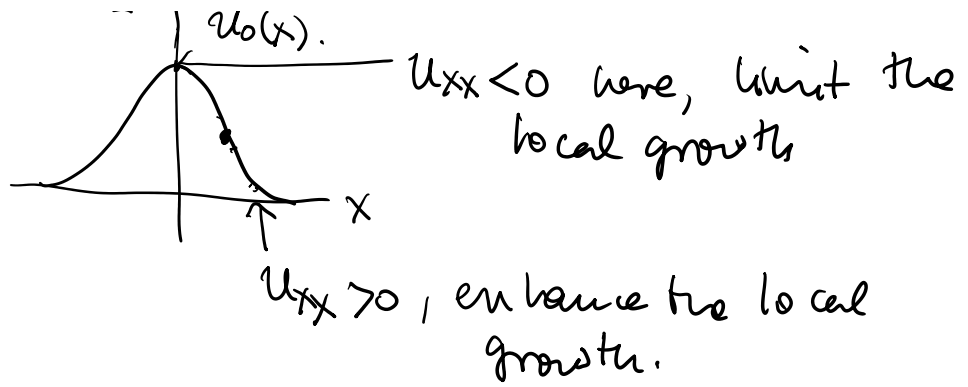 u₀(x).
uₓₓ<0 here, limit the
local growth
x
uₓₓ>0, enhance the local
growth.